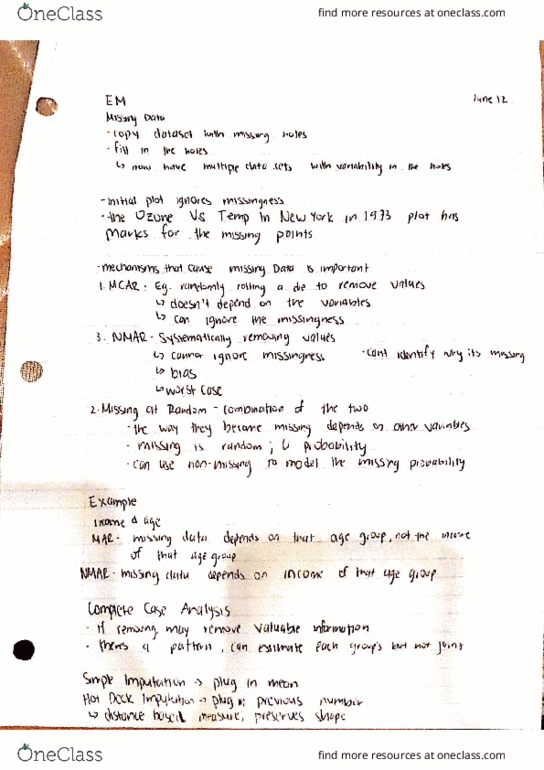 OneClass
find more resources at oneclass.com
EM
June 12
Missing Data
- copy dataset with missing holes
- fill in the holes
↳ now have multiple data sets with variability in the holes
- initial plot ignores missingness
- the Ozone Vs Temp in New York in 1973 plot has
marks for the missing points
- mechanisms that cause missing Data is important
1. MCAR - Eg. randomly rolling a die to remove values
↳ doesn't depend on the variables
↳ can ignore the missingness
3. NMAR - Systematically removing values
↳ cannot ignore missingness - cant identify why its missing
↳ bias
↳ worst case
2. Missing at Random - combination of the two
- the way they became missing depends on other variables
- missing is random; probability
- can use non-missing to model the missing probability
Example
Income & age
MAR - missing data depends on that age group, not the income
of that age group
NMAR - missing data depends on income of that age group
Complete Case Analysis
- If removing may remove valuable information
- theres a pattern, can estimate each group's but not joint
Simple Imputation → plug in mean
Hot Deck Imputation → plug in previous number
↳ distance based measure, preserves shape
OneClass
find more resources at oneclass.com